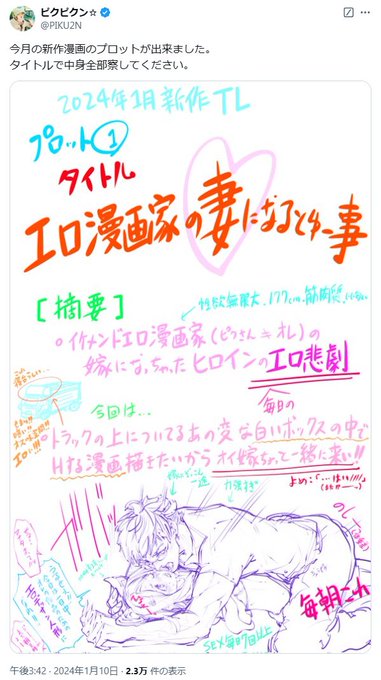 ピクピクン☆
@PIKU2N
今月の新作漫画のプロットが出来ました。
タイトルで中身全部察してください。
2024年1月新作TL
プロット①
タイトル
エロ漫画家の妻になるとゆー事
[摘要]
性欲無限大、177cm、筋肉質
○イケメンドエロ漫画家(ピクさん≒オレ)の
嫁になっちゃったヒロインのエロ悲劇
毎日の
今回は…
○トラックの上についてるあの変な白いボックスの中で
Hする漫画描きたいからオイ嫁ちゃん一緒に来い!!
よめ:「…はい////」
毎朝これ
SEX毎日7回以上
午後3:42 · 2024年1月10日 · 2.3万 件の表示